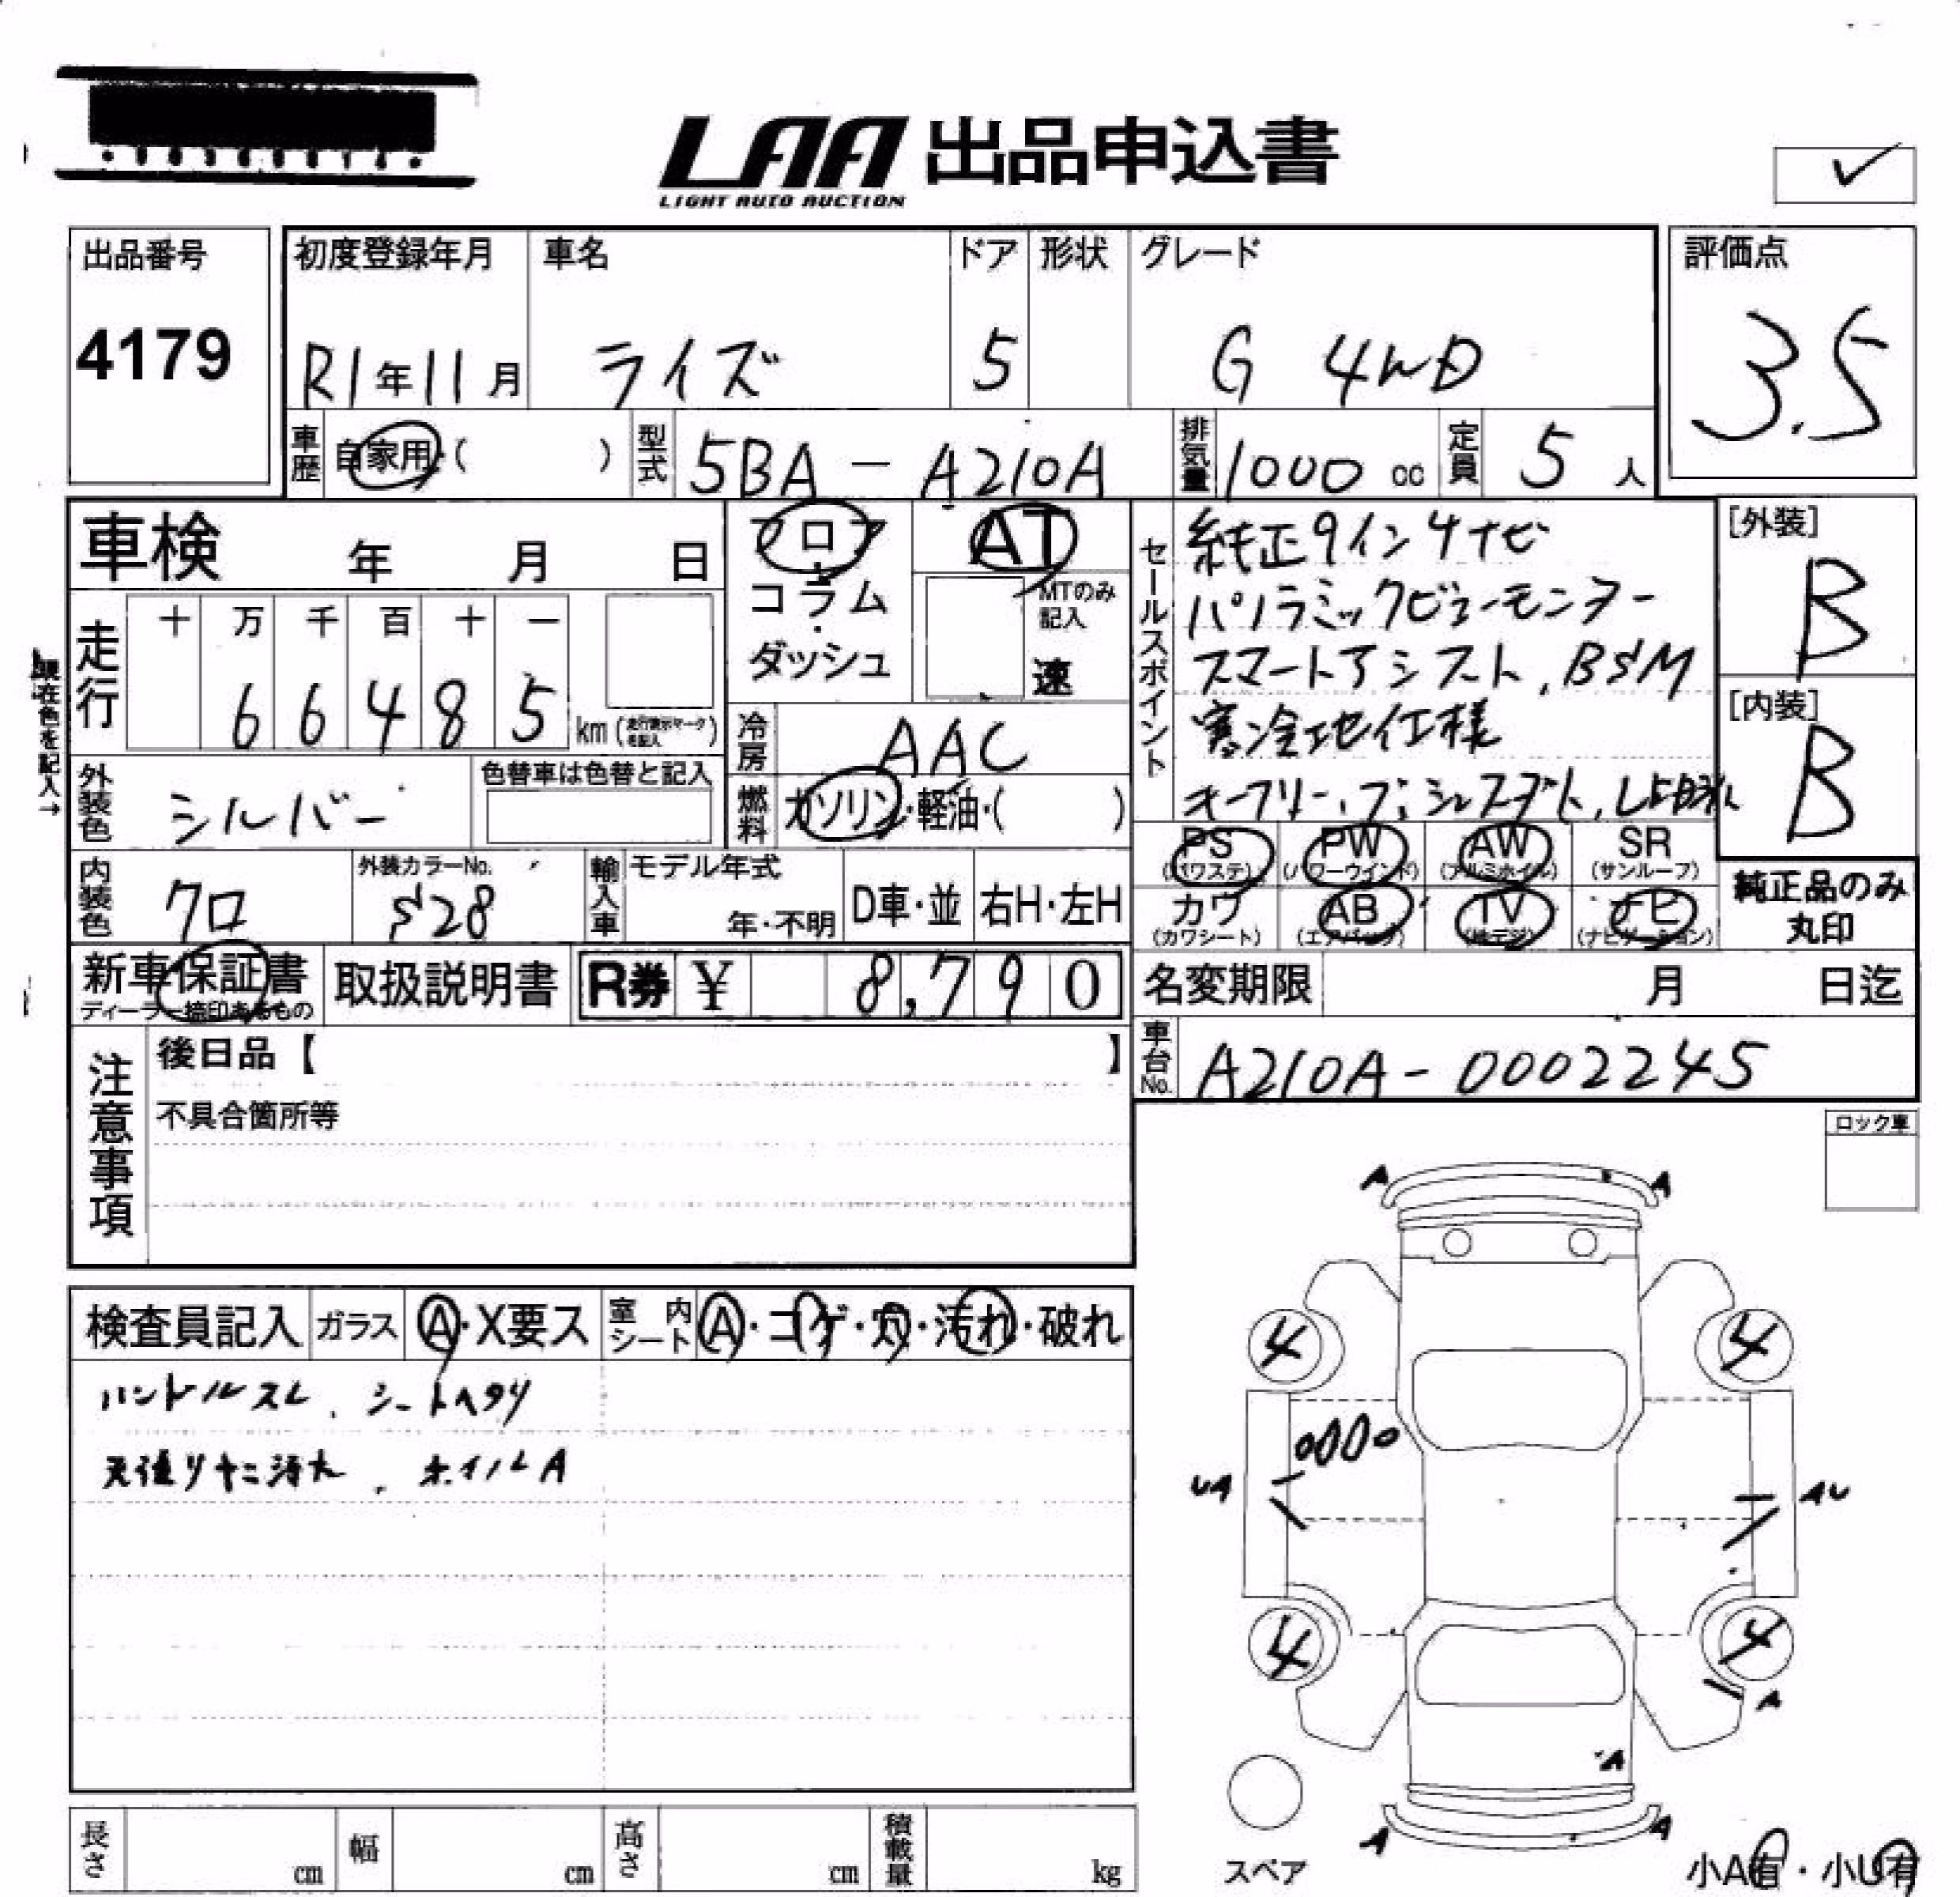 LAA 出品申込書
LIGHT AUTO AUCTION
出品番号
4179
初度登録年月
R1年11月
車名
ライズ
ドア
5
形状
グレード
G 4WD
評価点
3.5
車歴
自家用・( )
型式
5BA-A210A
排気量
1000 cc
定員
5 人
車検 年 月 日
フロア
コラム
・
ダッシュ
AT
MTのみ
記入
速
セールスポイント
純正9インチナビ
パノラミックビューモニター
スマートアシスト、BSM
寒冷地仕様
[外装]
B
[内装]
B
現在色を記入→
走行
十 万 千 百 十 一
6 6 4 8 5
km (走行表示マークを記入)
冷房
AAC
外装色
シルバー
色替車は色替と記入
燃料
ガソリン・軽油・( )
PS
(パワステ)
PW
(パワーウインド)
AW
(アルミホイル)
SR
(サンルーフ)
カワ
(カワシート)
AB
(エアバック)
TV
(地デジ)
ナビ
(ナビゲーション)
純正品のみ
丸印
内装色
クロ
外装カラーNo.
S28
輸入車
モデル年式
年・不明
D車・並
右H・左H
新車保証書
ディーラー捺印あるもの
取扱説明書
R券 ¥ 8,790
名変期限 月 日迄
車台No.
A210A-0002245
注意事項
後日品【 】
不具合箇所等
ロック車
検査員記入
ガラス
A・X要ス
室内
シート
A・コゲ・穴・汚れ・破れ
ハンドルスレ、シートヘタリ
天張りヤニ汚れ、ホイルA
A A
4 4
UA AU
4 4
A
A
A A
スペア
小A有・小U有
長さ cm
幅 cm
高さ cm
積載量 kg